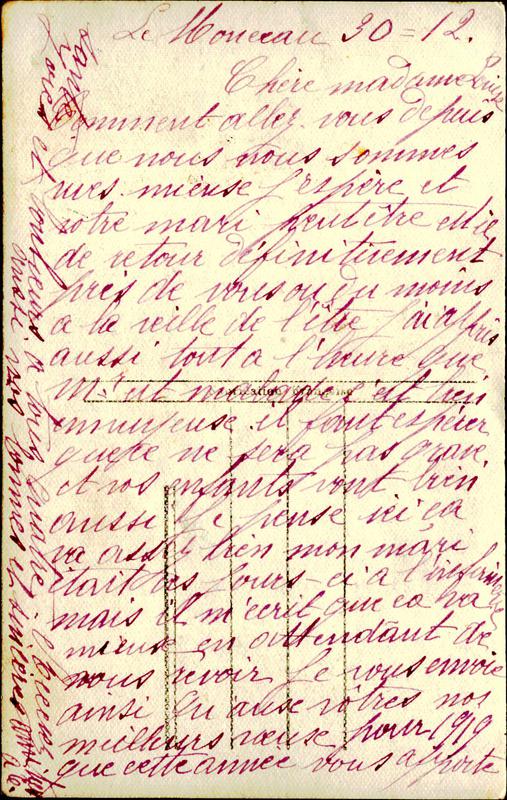 Le Monceau 30=12.
Chère madame Louise
Comment allez vous depuis
que nous nous sommes
vues. mieuse j'espère et
votre mari peut être est il
de retour définitivement
près de vous ou du moins
a la veille de l'être j'ai appris
aussi tout a l'heure que
est malade c'est bien
ennuyeuse il faut espérer
que ce ne sera pas grave
et vos enfants vont bien
aussi je pense ici ça
va assez bien mon mari
était ces jours-ci a l'infirmerie
mais il m'écrit que ca va
mieuse en attendant de
nous revoir je vous envoie
ainsi qu'ause vôtres nos
meilleurs vœuse pour 1919
que cette année vous apporte
santé
joies et
a tous
vous bonnes et sincères